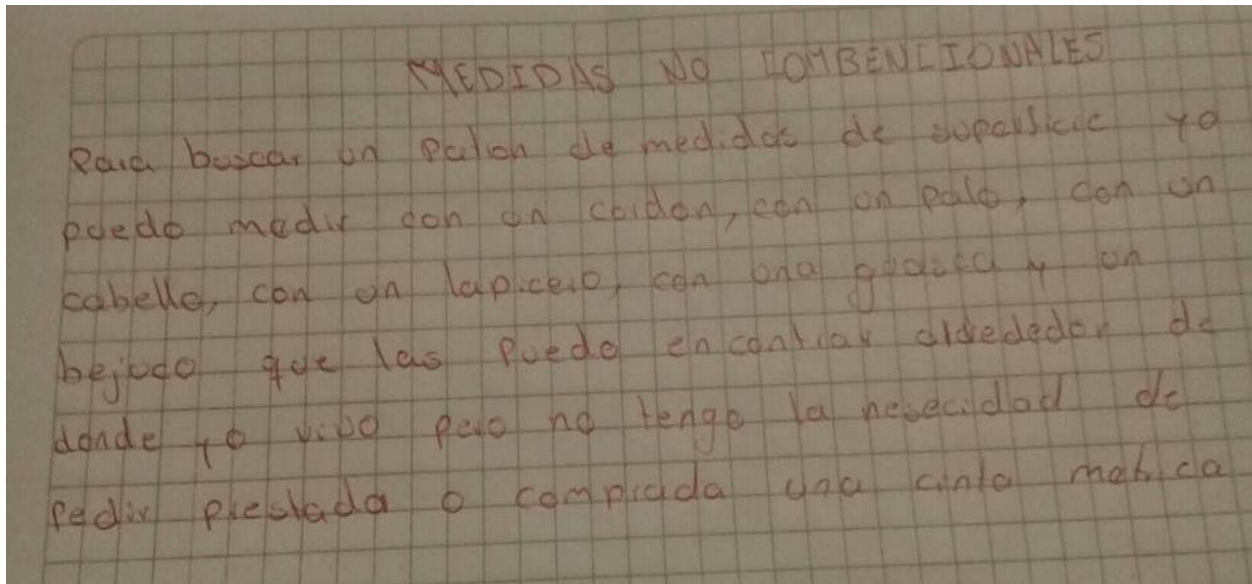 MEDIDAS NO COMBENCIONALES
Para buscar un patron de medidas de superficie yo
puedo medir con un cordon, con un palo, con un
cabello, con un lapicero, con una guasca y un
bejuco que las puedo encontrar alrededor de
donde yo vivo pero no tengo la nesecidad de
pedir prestada o comprada una cinta metrica